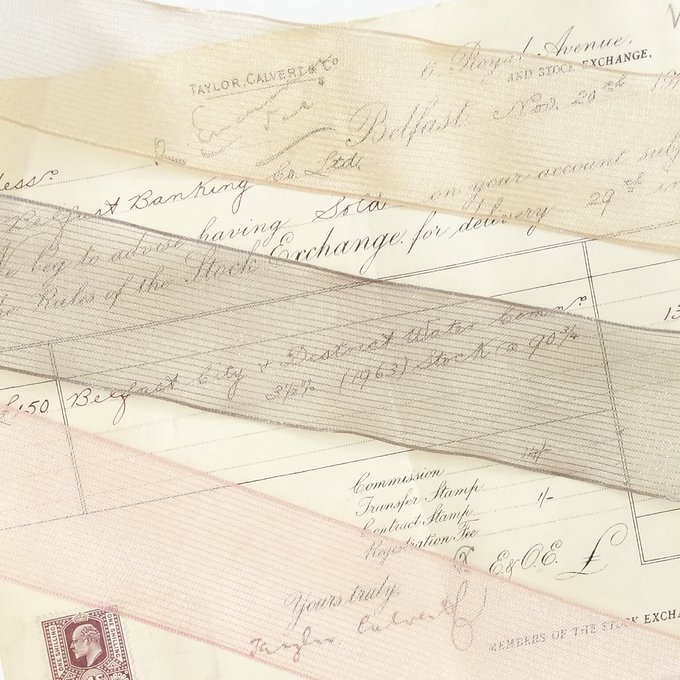 TAYLOR, CALVERT & Co
11, Royal Avenue,
AND STOCK EXCHANGE,
Belfast, Nov. 28th
Messrs
Belfast Banking Co. Ltd.
We beg to advise having Sold on your account
the Rules of the Stock Exchange. for delivery 29th
£150 Belfast City & District Water Commrs
3½% (1963) Stock @ 90¾
Commission
Transfer Stamp
Contract Stamp 1/-
Registration Fee
E.& O.E. £
Yours truly,
Taylor Calvert & Co
MEMBERS OF THE STOCK
ONE SHILLING
ONE SHILLING